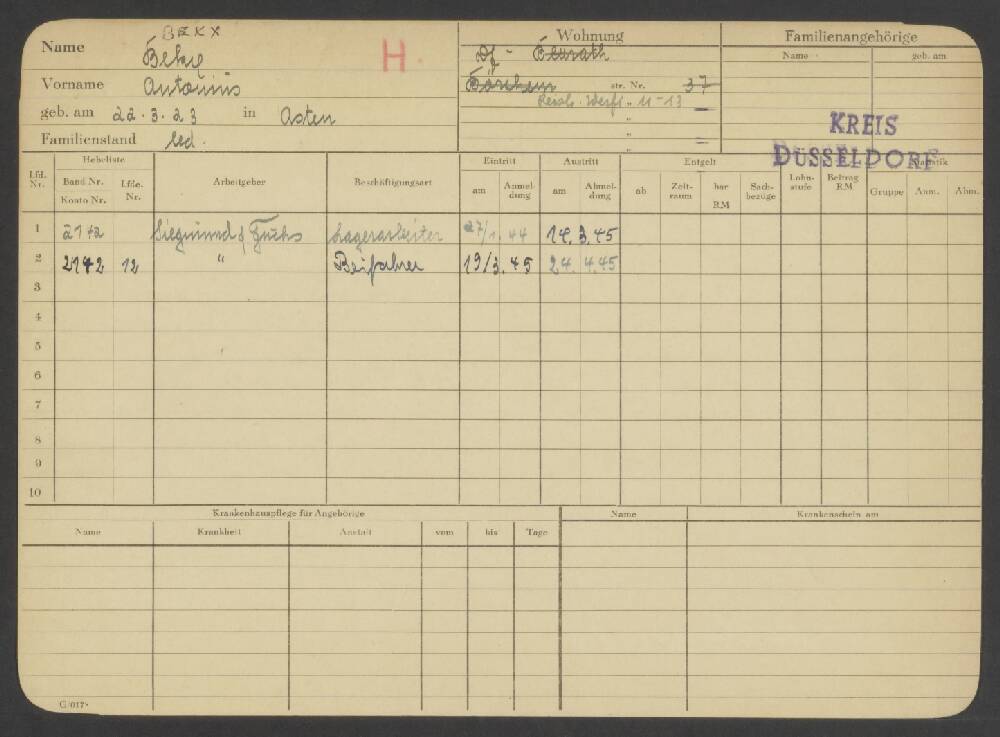 BEKX
Name
H.
Wohnung
Familienangehörige
Vorname Antonius
str. Nr. 37
Name geb. am
Reish. Werft " 11-13
geb. am 22.3.23 in Asten
Familienstand led.
KREIS
DÜSSELDORF
Lfd. Nr. Hebeliste Arbeitgeber Beschäftigungsart Eintritt Austritt Entgelt Lohnstufe Beitrag RM Statistik
Band Nr. Konto Nr. Lfde. Nr. am Anmeldung am Abmeldung ab Zeitraum bar RM Sachbezüge Gruppe Anm. Abm.
1 2142 Siegmund & Fuchs Lagerarbeiter 27/1.44 14.3.45
2 2142 12 " Beifahrer 19/3.45 24.4.45
3
4
5
6
7
8
9
10
Krankenhauspflege für Angehörige
Name Krankheit Anstalt vom bis Tage
Name Krankenschein am
G/017